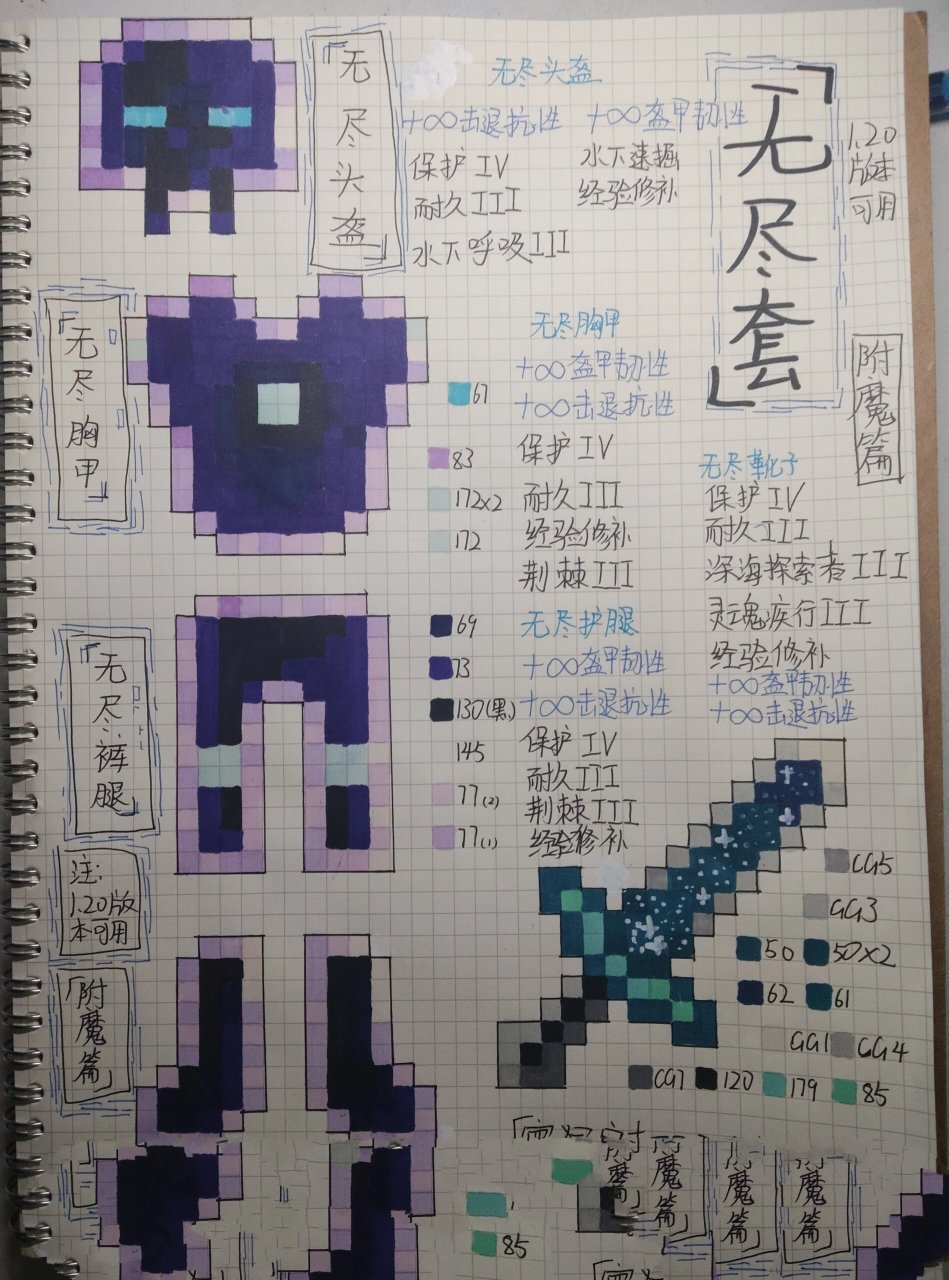 「无尽套」
1.20
版本
可用
附魔篇
「无尽头盔」
无尽头盔
+∞击退抗性
+∞盔甲韧性
保护IV
水下速掘
耐久III
经验修补
水下呼吸III
「无尽胸甲」
无尽胸甲
+∞盔甲韧性
+∞击退抗性
保护IV
耐久III
经验修补
荆棘III
61
83
172x2
172
69
73
130(黑)
145
77(2)
77(1)
无尽靴子
保护IV
耐久III
深海探索者III
灵魂疾行III
经验修补
+∞盔甲韧性
+∞击退抗性
「无尽裤腿」
无尽护腿
+∞盔甲韧性
+∞击退抗性
保护IV
耐久III
荆棘III
经验修补
注:
1.20版
本可用
「附魔篇」
CG5
GG3
50
50x2
62
61
GG1
CG4
CG7
120
179
85
85
魔篇」
魔篇」
魔篇」
魔篇」